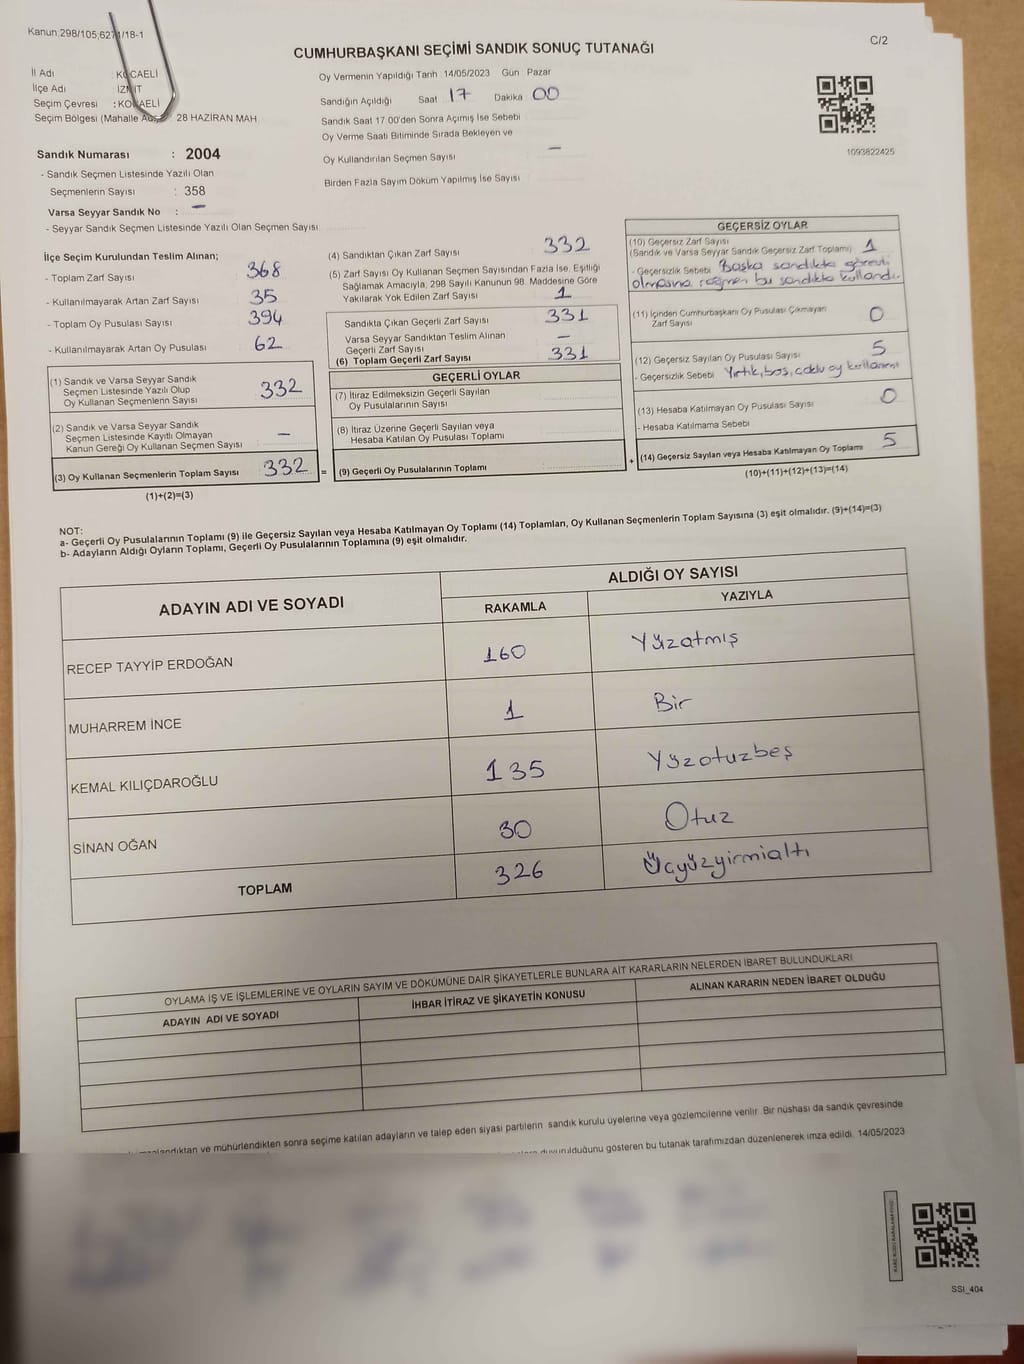 Kanun;298/105;6271/18-1
C/2
CUMHURBAŞKANI SEÇİMİ SANDIK SONUÇ TUTANAĞI
İl Adı : KOCAELİ
İlçe Adı İZMİT
Seçim Çevresi : KOCAELİ
Seçim Bölgesi (Mahalle 28 HAZİRAN MAH.
Oy Vermenin Yapıldığı Tarih 14/05/2023 Gün Pazar
Sandığın Açıldığı Saat 17 Dakika 00
Sandık Saat 17.00'den Sonra Açılmış İse Sebebi
Oy Verme Saati Bitiminde Sırada Bekleyen ve
Oy Kullandırılan Seçmen Sayısı —
Birden Fazla Sayım Döküm Yapılmış İse Sayısı
1093822425
Sandık Numarası : 2004
- Sandık Seçmen Listesinde Yazılı Olan
Seçmenlerin Sayısı : 358
Varsa Seyyar Sandık No : —
- Seyyar Sandık Seçmen Listesinde Yazılı Olan Seçmen Sayısı
İlçe Seçim Kurulundan Teslim Alınan;
- Toplam Zarf Sayısı 368
- Kullanılmayarak Artan Zarf Sayısı 35
- Toplam Oy Pusulası Sayısı 394
- Kullanılmayarak Artan Oy Pusulası 62
(1) Sandık ve Varsa Seyyar Sandık
Seçmen Listesinde Yazılı Olup
Oy Kullanan Seçmenlerin Sayısı 332
(2) Sandık ve Varsa Seyyar Sandık
Seçmen Listesinde Kayıtlı Olmayan
Kanun Gereği Oy Kullanan Seçmen Sayısı —
(3) Oy Kullanan Seçmenlerin Toplam Sayısı 332 =
(1)+(2)=(3)
(4) Sandıktan Çıkan Zarf Sayısı 332
(5) Zarf Sayısı Oy Kullanan Seçmen Sayısından Fazla İse, Eşitliği
Sağlamak Amacıyla, 298 Sayılı Kanunun 98. Maddesine Göre
Yakılarak Yok Edilen Zarf Sayısı 1
Sandıkta Çıkan Geçerli Zarf Sayısı 331
Varsa Seyyar Sandıktan Teslim Alınan
Geçerli Zarf Sayısı —
(6) Toplam Geçerli Zarf Sayısı 331
GEÇERLİ OYLAR
(7) İtiraz Edilmeksizin Geçerli Sayılan
Oy Pusulalarının Sayısı
(8) İtiraz Üzerine Geçerli Sayılan veya
Hesaba Katılan Oy Pusulası Toplamı
(9) Geçerli Oy Pusulalarının Toplamı +
GEÇERSİZ OYLAR
(10) Geçersiz Zarf Sayısı
(Sandık ve Varsa Seyyar Sandık Geçersiz Zarf Toplamı) 1
- Geçersizlik Sebebi Başka sandıkta görevli
olmasına rağmen bu sandıkta kullandı.
(11) İçinden Cumhurbaşkanı Oy Pusulası Çıkmayan
Zarf Sayısı 0
(12) Geçersiz Sayılan Oy Pusulası Sayısı 5
- Geçersizlik Sebebi Yırtık, boş, oy kullanımı
(13) Hesaba Katılmayan Oy Pusulası Sayısı 0
- Hesaba Katılmama Sebebi
(14) Geçersiz Sayılan veya Hesaba Katılmayan Oy Toplamı 5
(10)+(11)+(12)+(13)=(14)
NOT:
a- Geçerli Oy Pusulalarının Toplamı (9) ile Geçersiz Sayılan veya Hesaba Katılmayan Oy Toplamı (14) Toplamları, Oy Kullanan Seçmenlerin Toplam Sayısına (3) eşit olmalıdır. (9)+(14)=(3)
b- Adayların Aldığı Oyların Toplamı, Geçerli Oy Pusulalarının Toplamına (9) eşit olmalıdır.
ADAYIN ADI VE SOYADI
ALDIĞI OY SAYISI
RAKAMLA YAZIYLA
RECEP TAYYİP ERDOĞAN 160 Yüzatmış
MUHARREM İNCE 1 Bir
KEMAL KILIÇDAROĞLU 135 Yüzotuzbeş
SİNAN OĞAN 30 Otuz
TOPLAM 326 Üçyüzyirmialtı
OYLAMA İŞ VE İŞLEMLERİNE VE OYLARIN SAYIM VE DÖKÜMÜNE DAİR ŞİKAYETLERLE BUNLARA AİT KARARLARIN NELERDEN İBARET BULUNDUKLARI
ADAYIN ADI VE SOYADI İHBAR İTİRAZ VE ŞİKAYETİN KONUSU ALINAN KARARIN NEDEN İBARET OLDUĞU
ve mühürlendikten sonra seçime katılan adayların ve talep eden siyasi partilerin sandık kurulu üyelerine veya gözlemcilerine verilir. Bir nüshası da sandık çevresinde
duyurulduğunu gösteren bu tutanak tarafımızdan düzenlenerek imza edildi. 14/05/2023
SSI_404